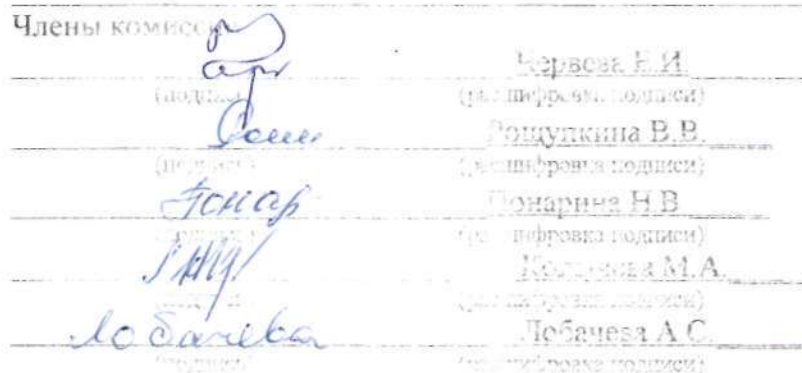 Члены комиссии
Е.И.
(подпись) (расшифровка подписи)
Рощупкина В.В.
(подпись) (расшифровка подписи)
Понар Понарина Н.В.
(подпись) (расшифровка подписи)
М.А.
(подпись) (расшифровка подписи)
Лобачева Лобачева А.С.
(подпись) (расшифровка подписи)